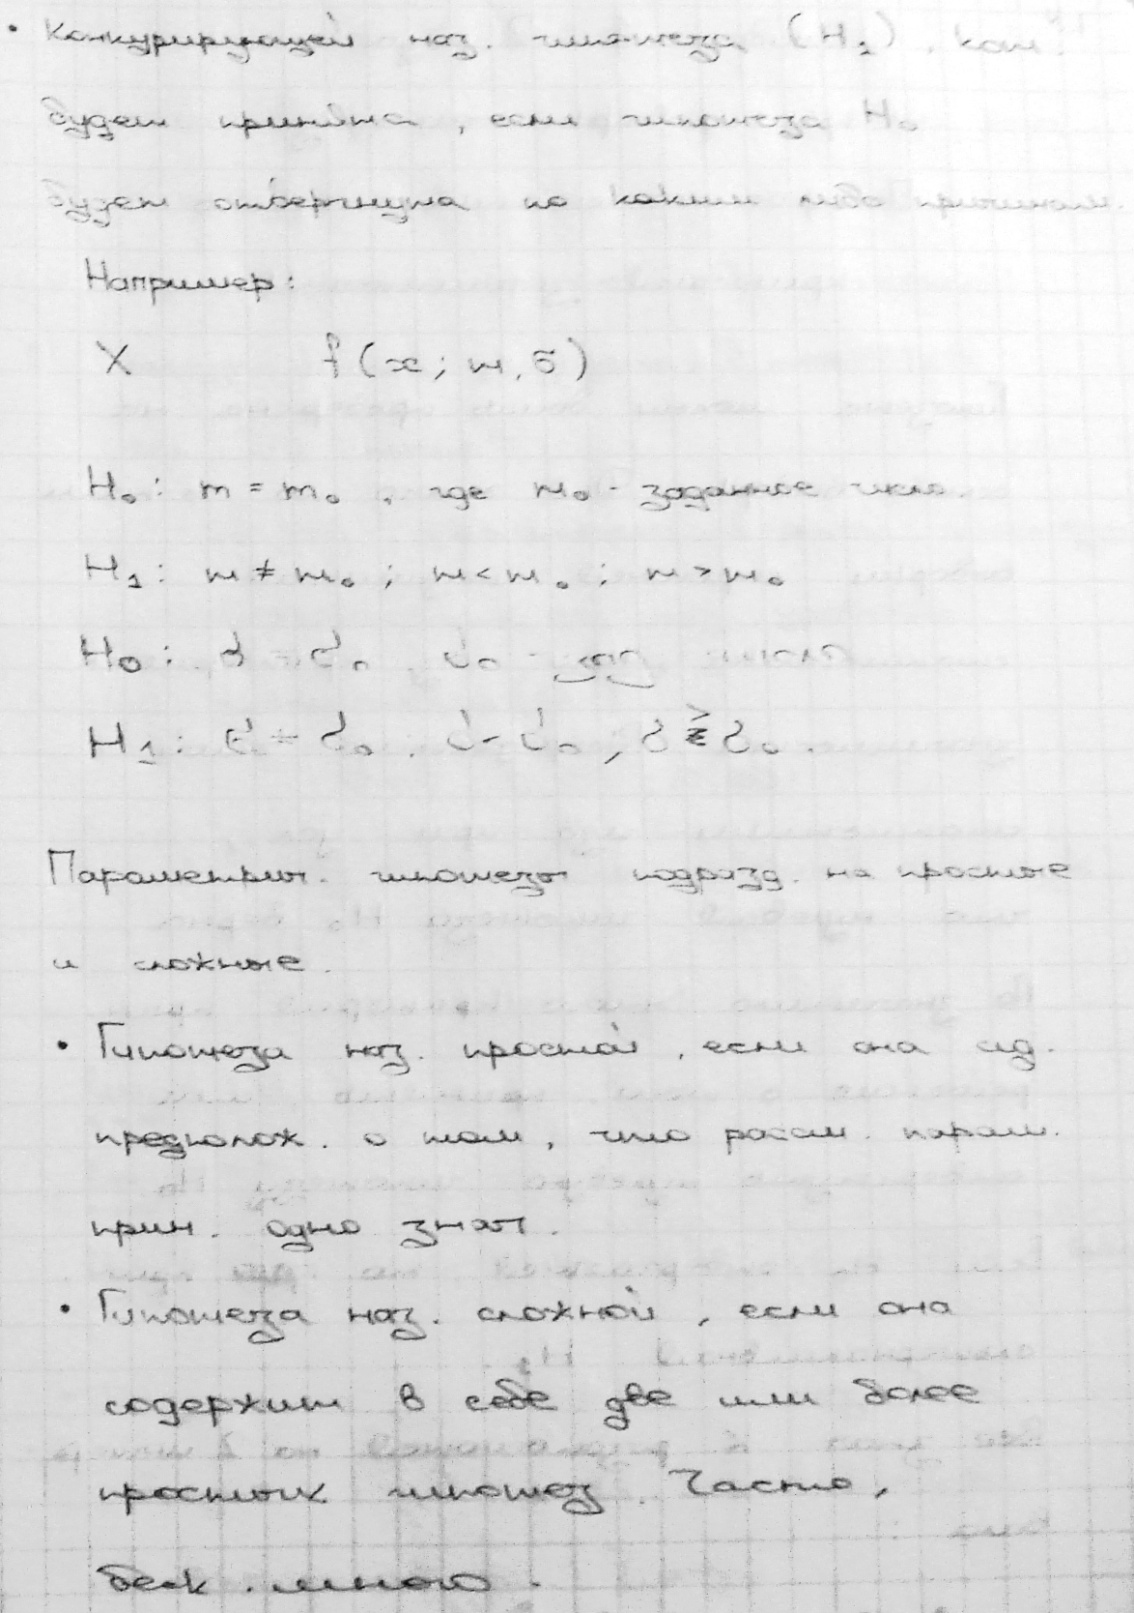 • Конкурирующей наз. гипотеза (H₁), кот.
будет принята, если гипотеза H₀
будет отвергнута по каким либо причинам.
Например:
X f(x; m, σ)
H₀: m = m₀, где m₀ - заданное число.
H₁: m ≠ m₀; m < m₀; m > m₀
H₀: σ = σ₀, σ₀ -
H₁: σ ≠ σ₀, σ - σ₀, σ > σ₀.
Параметрич. гипотезы подразд. на простые
и сложные.
• Гипотеза наз. простой, если она сод.
предполож. о том, что рассм. парам.
прин. одно знач.
• Гипотеза наз. сложной, если она
содержит в себе две или более
простых гипотез. Часто,
беск. много.